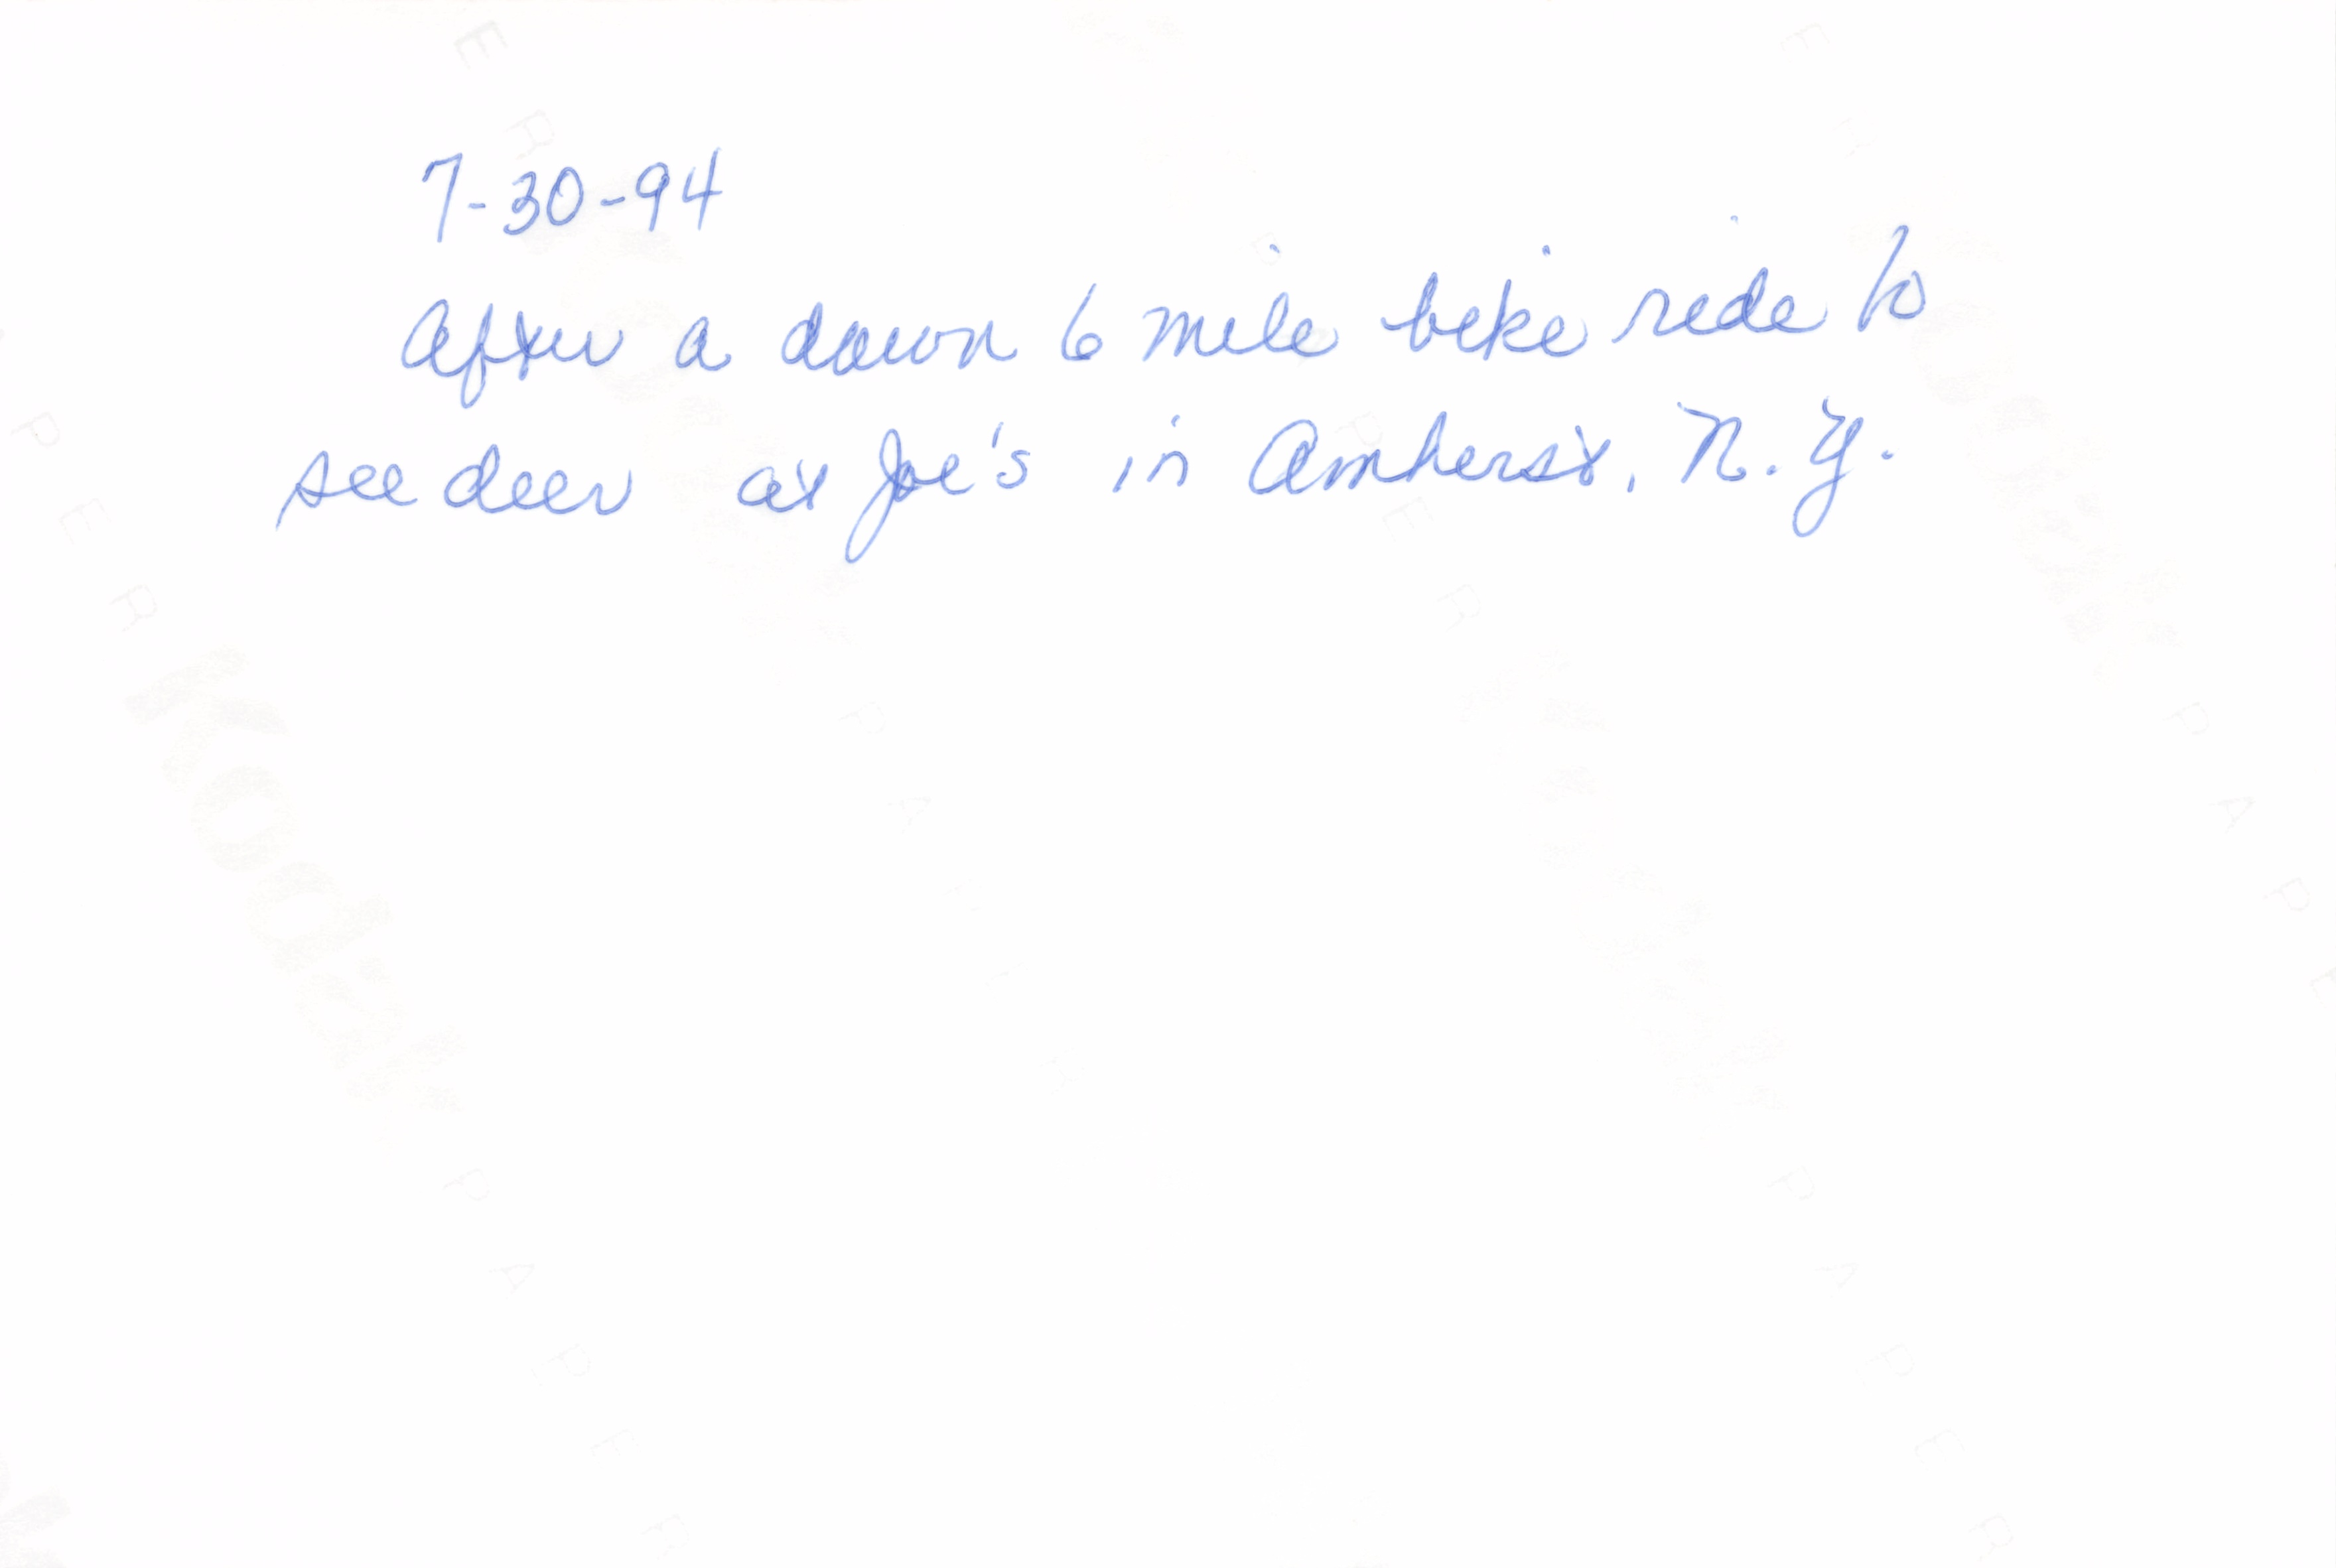 7-30-94
After a dawn 6 mile bike ride to
see deer at Joe's in Amherst, N.Y.
Kodak